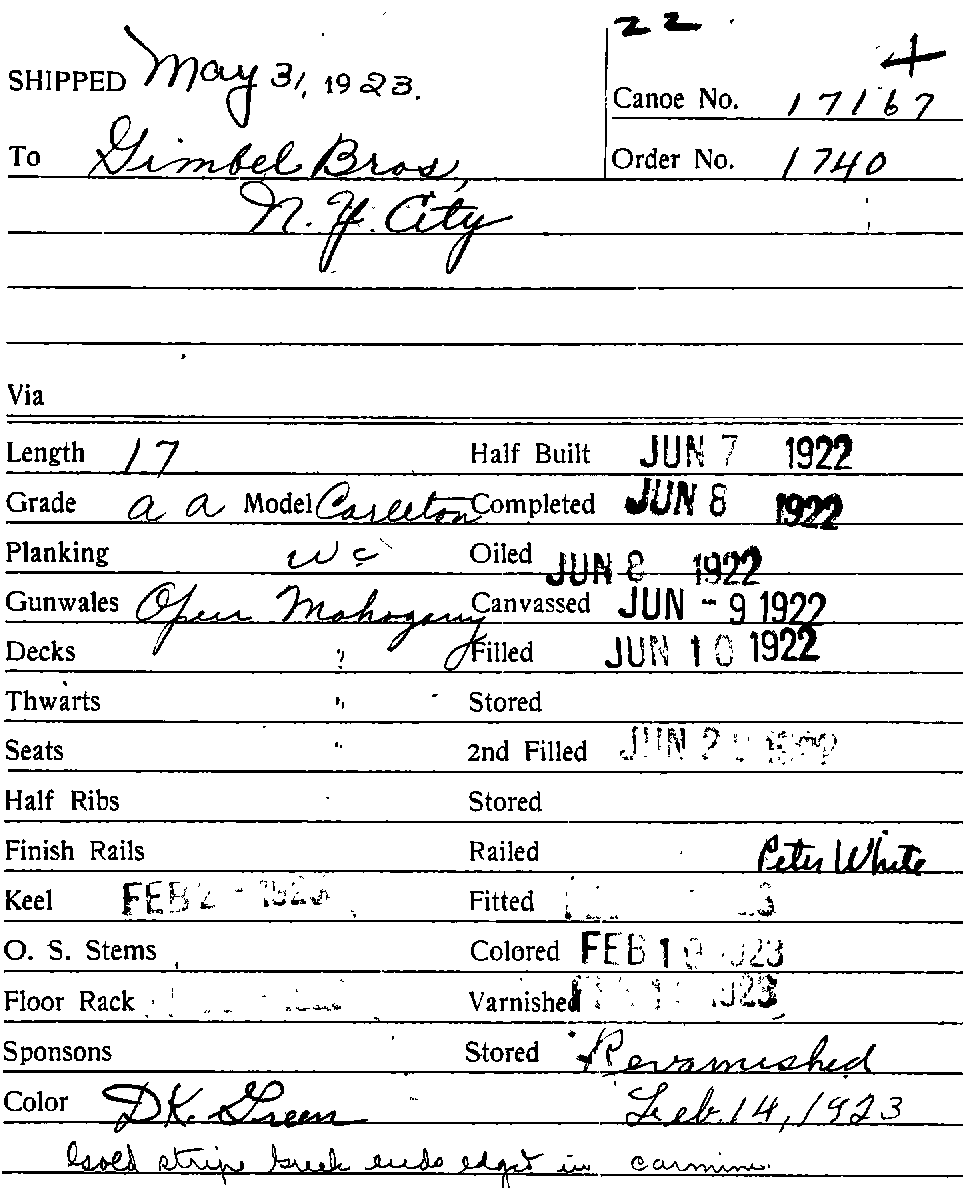 22
4
SHIPPED May 31, 1923.
Canoe No. 17167
To Gimbel Bros,
Order No. 1740
N. Y. City
Via
Length 17 Half Built JUN 7 1922
Grade a a Model Carleton Completed JUN 8 1922
Planking wc Oiled JUN 8 1922
Gunwales Open Mahogany Canvassed JUN -9 1922
Decks " Filled JUN 10 1922
Thwarts " Stored
Seats " 2nd Filled JUN
Half Ribs Stored
Finish Rails Railed Peter White
Keel FEB 2 - 1923 Fitted
O. S. Stems Colored FEB 1
Floor Rack Varnished
Sponsons Stored Revarnished
Color DK. Green Feb. 14, 1923
Gold stripe Greek ends edged in carmine.